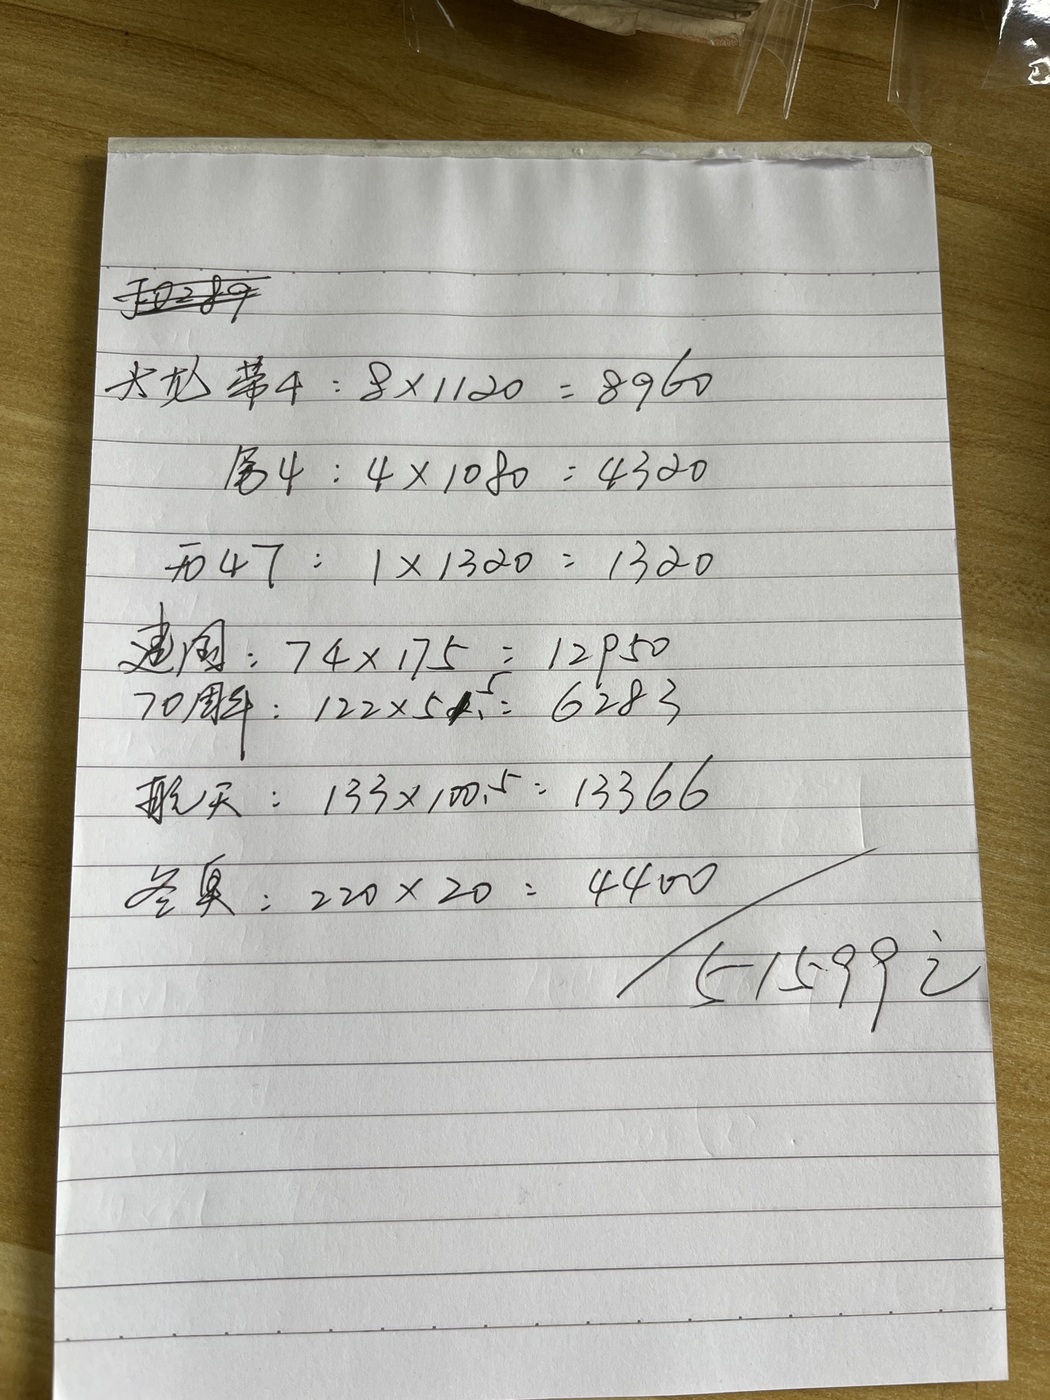 大龙 带4：8×1120=8960
尾4：4×1080=4320
无47：1×1320=1320
建国：74×175=12950
70周年：122×51.5=6283
航天：133×100.5=13366
冬奥：220×20=4400
51599元